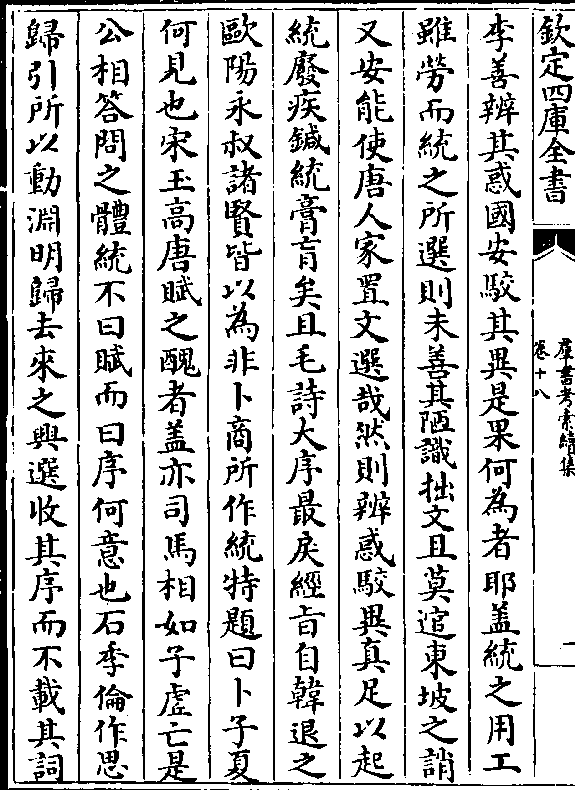 欽定四庫全書
羣書考索續集
卷十八
一
李善辨其惑國安駮其異是果何為者耶蓋統之用工
雖勞而統之所選則未善其陋識拙文且莫逭東坡之誚
又安能使唐人家置文選哉然則辨惑駮異真足以起
統廢疾鍼統膏肓矣且毛詩大序最戾經旨自韓退之
歐陽永叔諸賢皆以為非卜商所作統特題曰卜子夏
何見也宋玉高唐賦之醜者蓋亦司馬相如子虛亡是
公相答問之體統不曰賦而曰序何意也石季倫作思
歸引所以動淵明歸去來之興選收其序而不載其詞